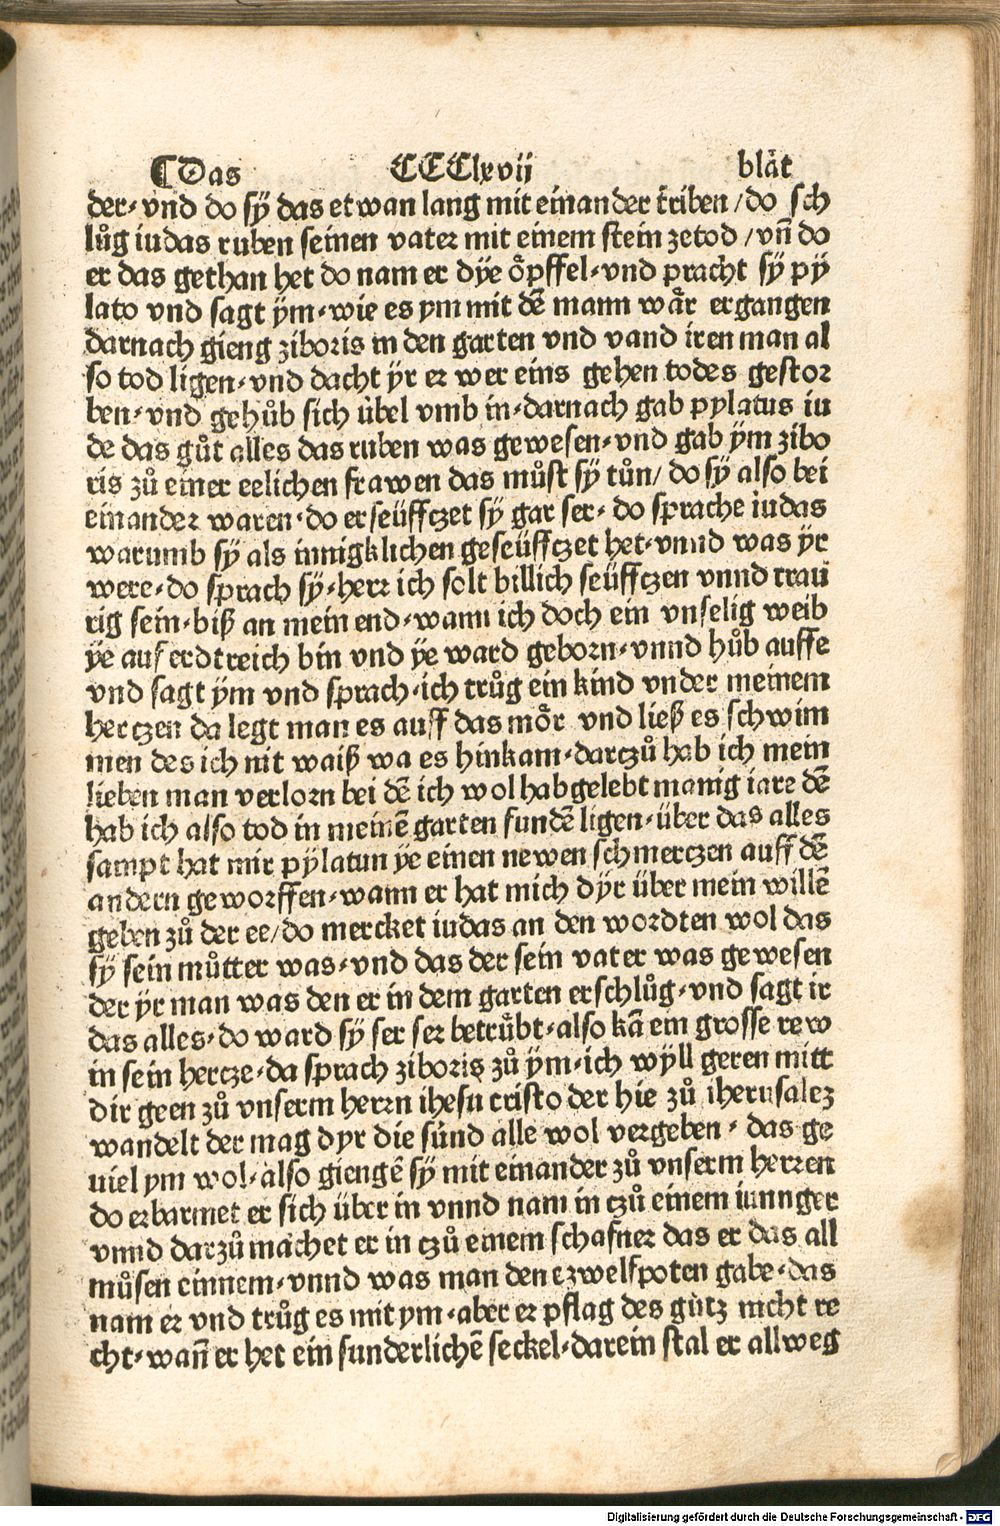 Das CCClxvii blåt
der⸗ vnd do sÿ das etwan lang mit einander triben / do sch
lůg iudas ruben seinen vater mit einem stein zetod / vñ do
er das gethan het do nam er dÿe ôpffel⸗ vnd pracht sÿ pÿ
lato vnd sagt ÿm⸗ wie es ym mit dē mann wår ergangen
darnach gieng ziboris in den garten vnd vand iren man al
so tod ligen⸗ vnd dacht ÿr er wer eins gehen todes gestor
ben⸗ vnd gehůb sich übel vmb in⸗ darnach gab pylatus iu
de das gůt alles das ruben was gewesen⸗ vnd gab ÿm zibo
ris zů einer eelichen frawen das můst sÿ tůn / do sÿ also bei
einander waren⸗ do erseüfftzet sÿ gar ser⸗ do sprache iudas
warumb sÿ als innigklichen geseüfftzet het⸗ vnnd was ÿr
were⸗ do sprach sÿ⸗ herr ich solt billich seüfftzen vnnd trau
rig sein⸗ biß an mein end⸗ wann ich doch ein vnselig weib
ÿe auf erdtreich bin vnd ÿe ward geborn⸗ vnnd hůb auffe
vnd sagt ÿm vnd sprach⸗ ich trůg ein kind vnder meinem
hertzen da legt man es auff das môr vnd ließ es schwim
men des ich nit waiß wa es hinkam⸗ dartzů hab ich mein
lieben man verlorn bei dē ich wol hab gelebt manig iare dē
hab ich also tod in meinē garten fundē ligen⸗ über das alles
sampt hat mir pÿlatun ÿe einen newen schmertzen auff dē
andern geworffen⸗ wann er hat mich dÿr über mein willē
geben zů der ee / do mercket iudas an den wordten wol das
sÿ sein můtter was⸗ vnd das der sein vater was gewesen
der ÿr man was den er in dem garten erschlůg⸗ vnd sagt ir
das alles⸗ do ward sÿ ser ser betrůbt⸗ also kā ein grosse rew
in sein hertze⸗ da sprach ziboris zů ÿm⸗ ich wÿll geren mitt
dir geen zů vnserm herrn ihesu cristo der hie zů iherusalez
wandelt der mag dyr die sünd alle wol vergeben⸗ das ge
uiel ym wol⸗ also giengē sÿ mit einander zů vnserm herren
do erbarmet er sich über in vnnd nam in tzů einem iunnger
vnnd darzů machet er in tzů einem schafner das er das all
můsen einnem⸗ vnnd was man den zwelfpoten gabe⸗ das
nam er vnd trůg es mit ym⸗ aber er pflag des gůtz nicht re
cht⸗ wañ er het ein sunderlichē seckel⸗ darein stal er allweg
Digitalisierung gefördert durch die Deutsche Forschungsgemeinschaft - DFG